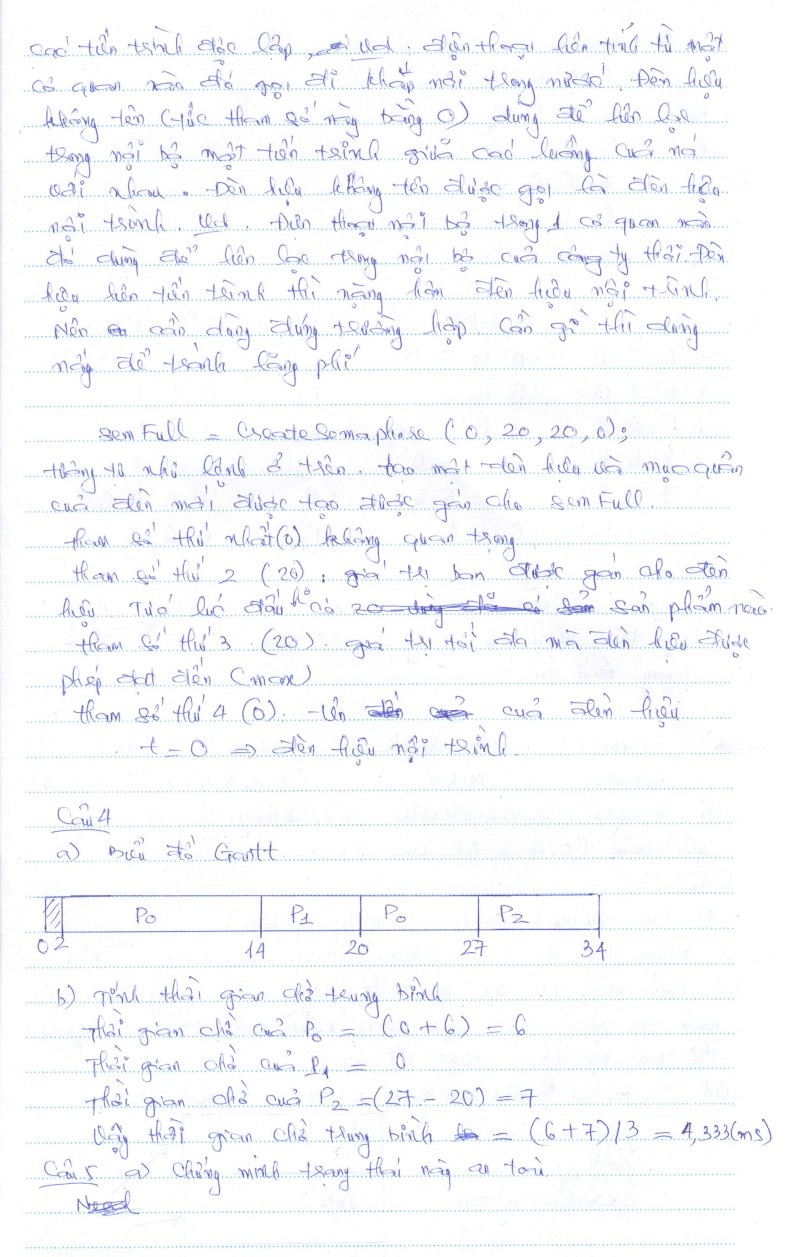 các tiến trình độc lập, Vd. điện thoại liên tỉnh từ một
cơ quan nào đó gọi đi khắp nơi trong nước. Đèn hiệu
không tên (tức tham số này bằng 0) dùng để liên lạc
trong nội bộ một tiến trình giữa các luồng của nó
với nhau. Đèn hiệu không tên được gọi là đèn hiệu
nội trình. Vd. Điện thoại nội bộ trong 1 cơ quan nào
đó dùng để liên lạc trong nội bộ của công ty thôi. Đèn
hiệu liên tiến trình thì nặng hơn đèn hiệu nội trình.
Nên cần dùng đúng trường hợp. Cần gì thì dùng
nấy để tránh lãng phí
semFull = CreateSemaphore (0, 20, 20, 0);
tương tự như lệnh ở trên. tạo một đèn hiệu và mục quản
của đèn mới được tạo được gán cho semFull.
tham số thứ nhất (0) không quan trọng
tham số thứ 2 (20) : giá trị ban được gán cho đèn
hiệu Tức lúc đầu có sản phẩm nào.
tham số thứ 3 (20). giá trị tối đa mà đèn hiệu được
phép đạt đến (max)
tham số thứ 4 (0). tên của đèn hiệu
t = 0 ⇒ đèn hiệu nội trình.
Câu 4
a) Biểu đồ Gantt
P0 P1 P0 P2
0 2 14 20 27 34
b) Tính thời gian chờ trung bình
Thời gian chờ của P0 = (0 + 6) = 6
Thời gian chờ của P1 = 0
Thời gian chờ của P2 = (27 - 20) = 7
Vậy thời gian chờ trung bình = (6 + 7) / 3 = 4,333 (ms)
Câu 5 a) Chứng minh trạng thái này an toàn